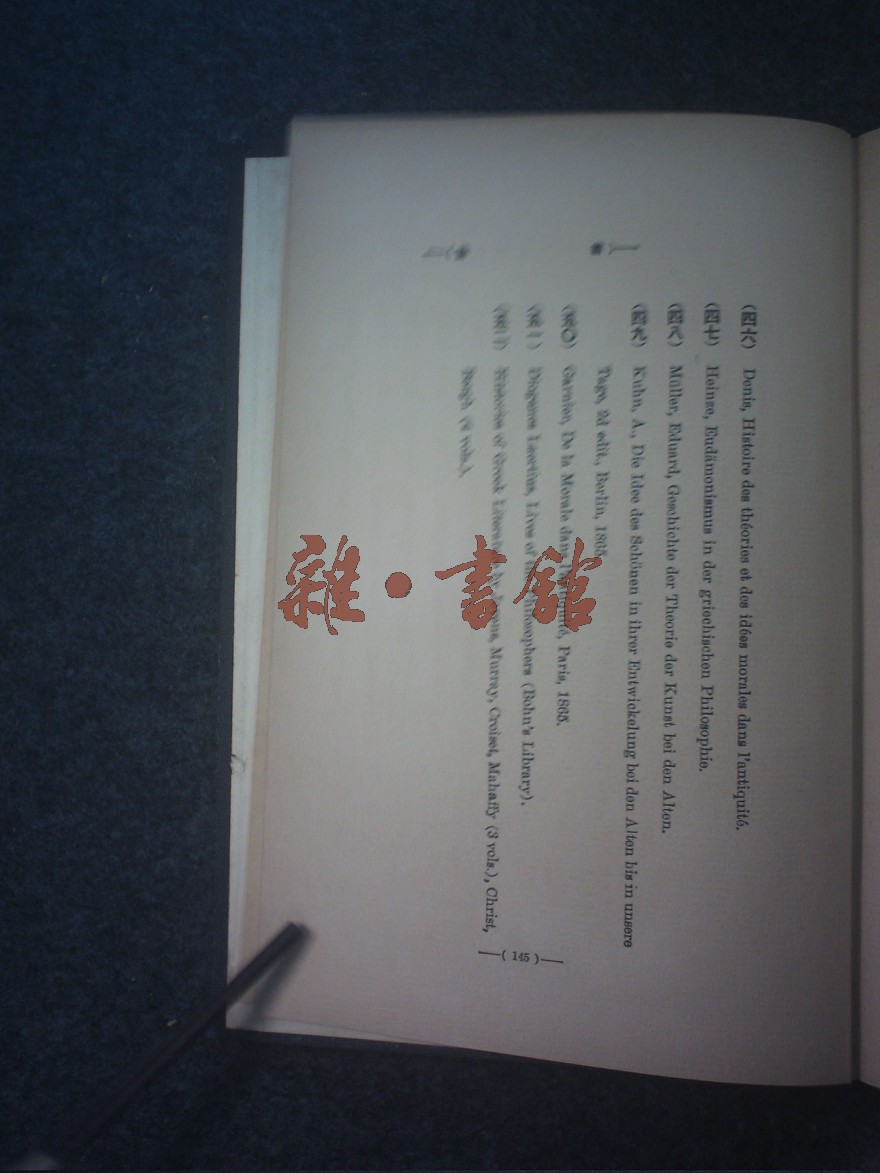 (四六) Denis, Histoire des théories et des idées morales dans l'antiquité.
(四七) Heinze, Eudämonismus in der griechischen Philosophie.
(四八) Müller, Eduard, Geschichte der Theorie der Kunst bei den Alten.
(四九) Kuhn, A., Die Idee des Schönen in ihrer Entwickelung bei den Alten bis in unsere
Tage, 2d edit., Berlin, 1865.
(五〇) Garnier, De la Morale dans l'antiquité, Paris, 1865.
(五一) Diogenes Laertius, Lives of the Philosophers (Bohn's Library).
(五二) Histories of Greek Literature by Jevons, Murray, Croiset, Mahaffy (3 vols.), Christ,
Bergk (4 vols.).
—( 145 )—
雜·書館